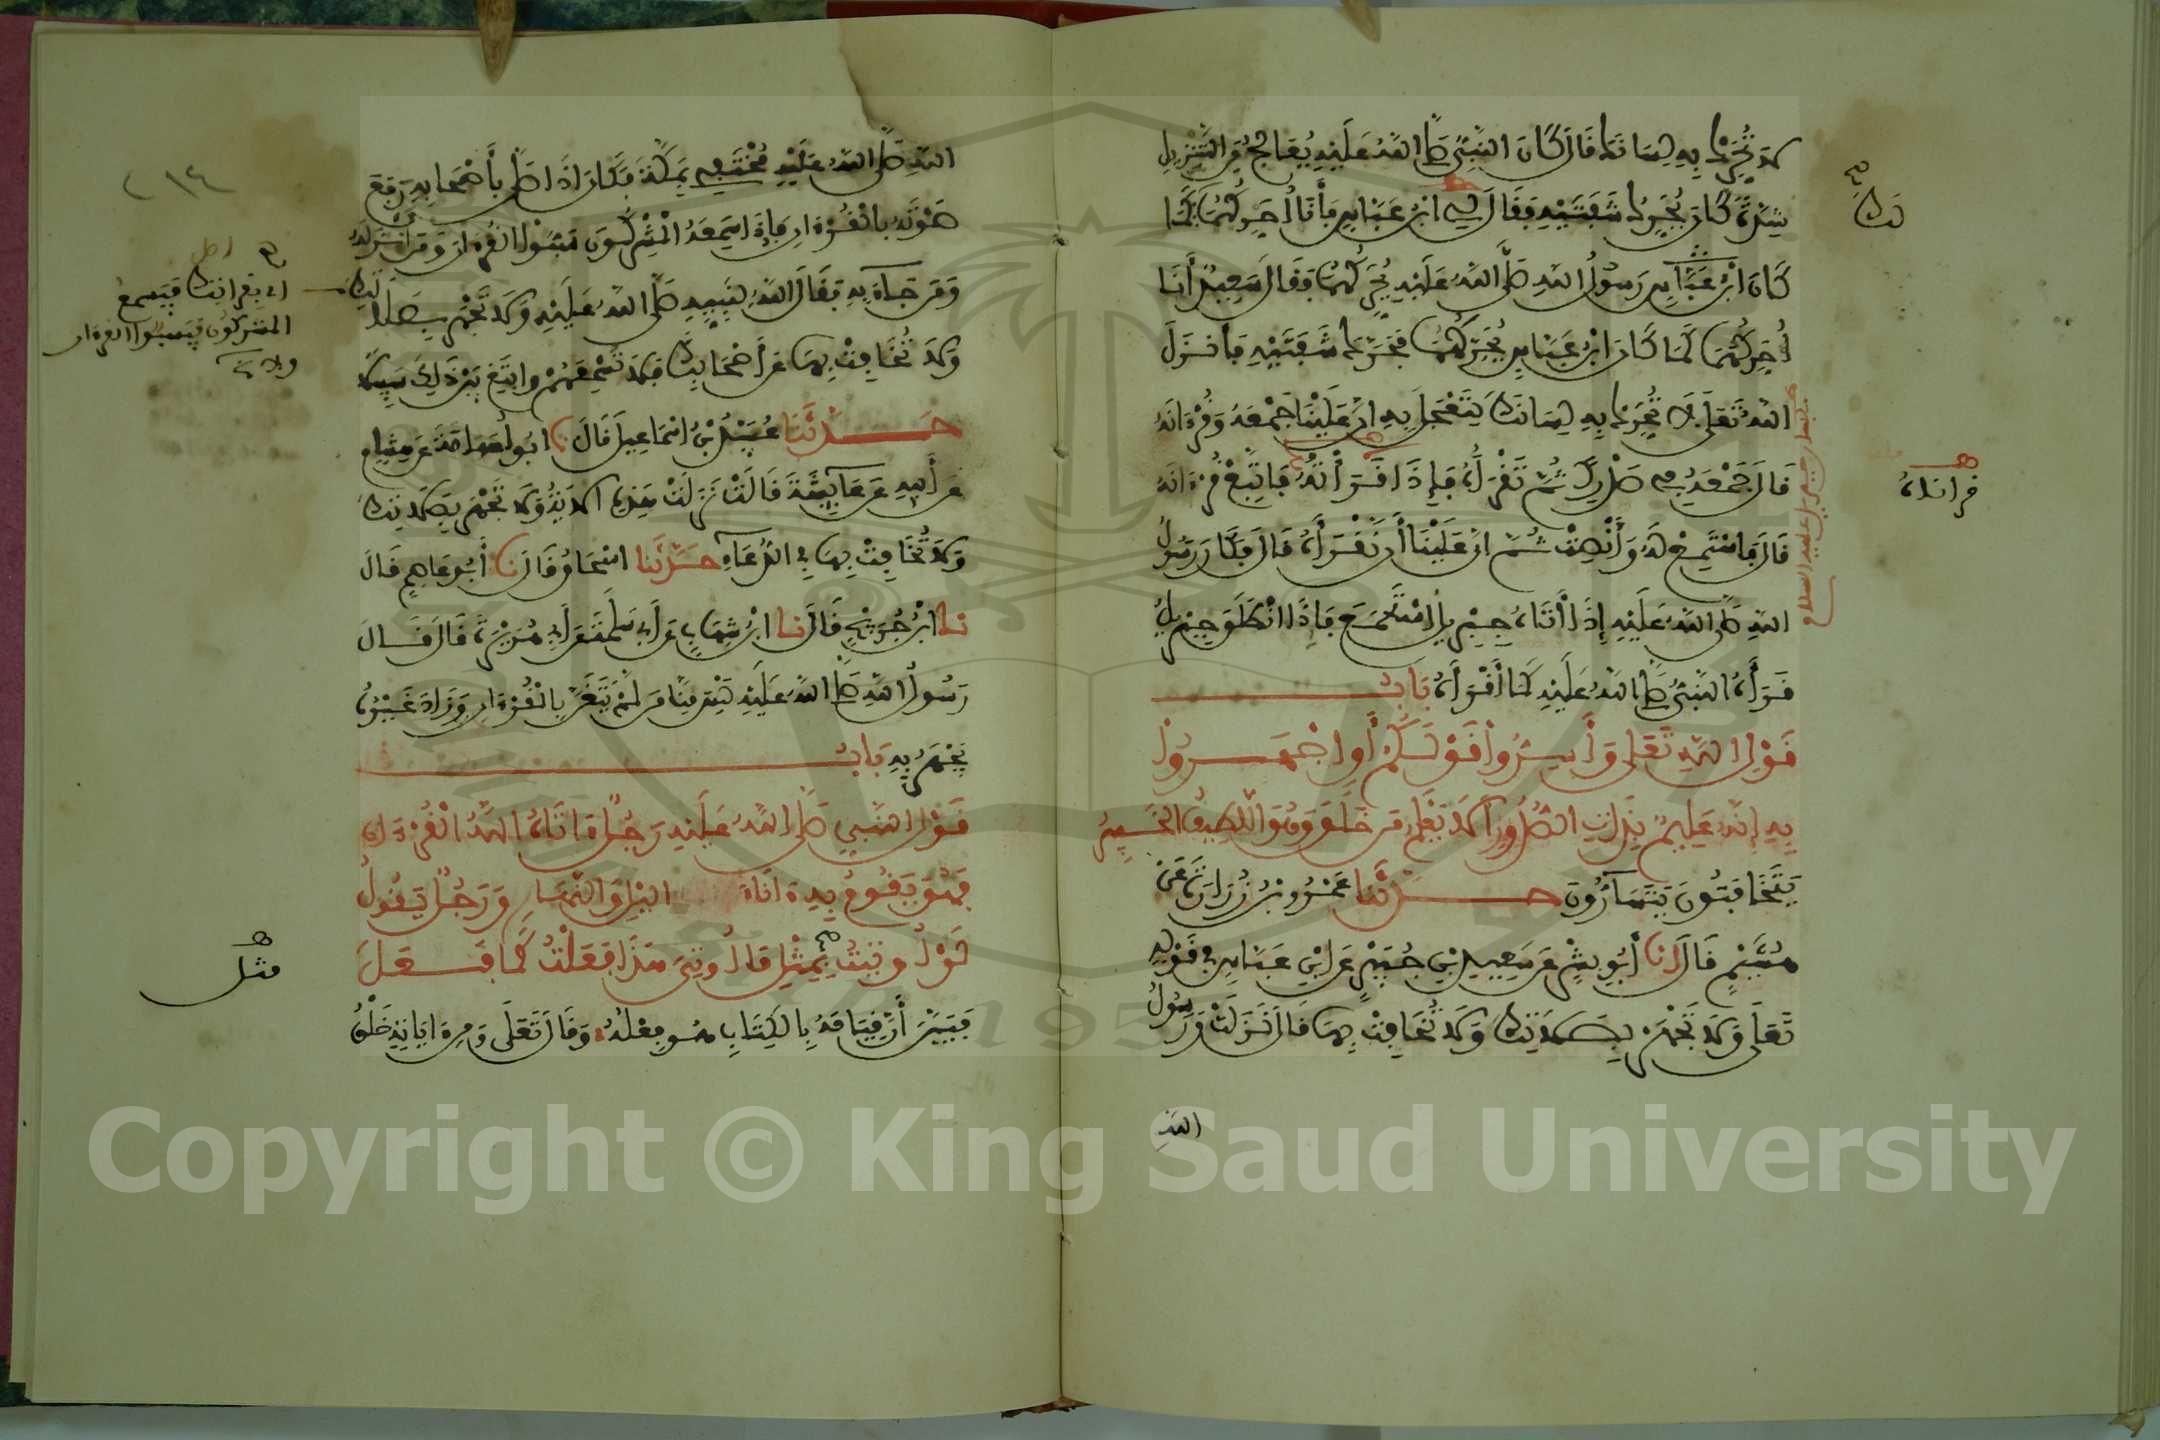 لا تحرك به لسانك قال كان النبي صلى الله عليه يعالج من التنزيل
شدة كان يحرك شفتيه فقال لي ابن عباس فأنا أحركهما كما
كان ابن عباس رسول الله صلى الله عليه يحركهما فقال سعيد أنا
أحركهما كما كان ابن عباس يحركهما فحرك شفتيه فأنزل
الله تعلى لا تحرك به لسانك لتعجل به ان علينا جمعه وقرءانه
قال جمعه في صدرك ثم تقرأه فإذا قرأناه فاتبع قرءانه
قال فاستمع له وأنصت ثم ان علينا أن نقرأه قال فكان رسول
الله صلى الله عليه إذا أتاه جبريل استمع فإذا انطلق جبريل
قرأه النبي صلى الله عليه كما أقرأه باب
قول الله تعلى وأسروا قولكم أو اجهروا
به إنه عليم بذات الصدور ألا يعلم من خلق وهو اللطيف الخبير
يتخافتون يتسارون حدثنا عمرو بن زرارة عن
هشيم قال انا أبو بشر عن سعيد بن جبير عن ابن عباس في قوله
تعلى ولا تجهر بصلاتك ولا تخافت بها قال نزلت ورسول
الله
لك
قرأناه
جبريل عليه السلام
الله صلى الله عليه مختف بمكة فكان إذا صلى بأصحابه رفع
صوته بالقرءان فإذا سمعه المشركون سبوا القرءان ومن أنزله
ومن جاء به فقال الله لنبيه صلى الله عليه ولا تجهر بصلاتك
ولا تخافت بها عن أصحابك فلا تسمعهم وابتغ بين ذلك سبيلا
حدثنا عبيد بن اسماعيل قال نا ابو أسامة عن هشام
عن أبيه عن عايشة قالت نزلت هذه الاية ولا تجهر بصلاتك
ولا تخافت بها في الدعاء حدثنا اسحاق قال نا أبو عاصم قال
نا ابن جريج قال نا ابن شهاب عن أبي سلمة عن أبي هريرة قال قال
رسول الله صلى الله عليه ليس منا من لم يتغن بالقرءان وزاد غيره
يجهر به باب
قول النبي صلى الله عليه رجل ءاتاه الله القرءان
فهو يقوم به ءاناء اليل والنهار ورجل يقول
لو أوتيت مثل ما أوتي هذا فعلت كما فعل
فبين أن قيامه بالكتاب هو فعله وقال تعلى ومن ءاياته خلق
٢١٤
اي بقراءتك فيسمع
المشركون فيسبوا القرءان
ولا
مثل
Copyright © King Saud University